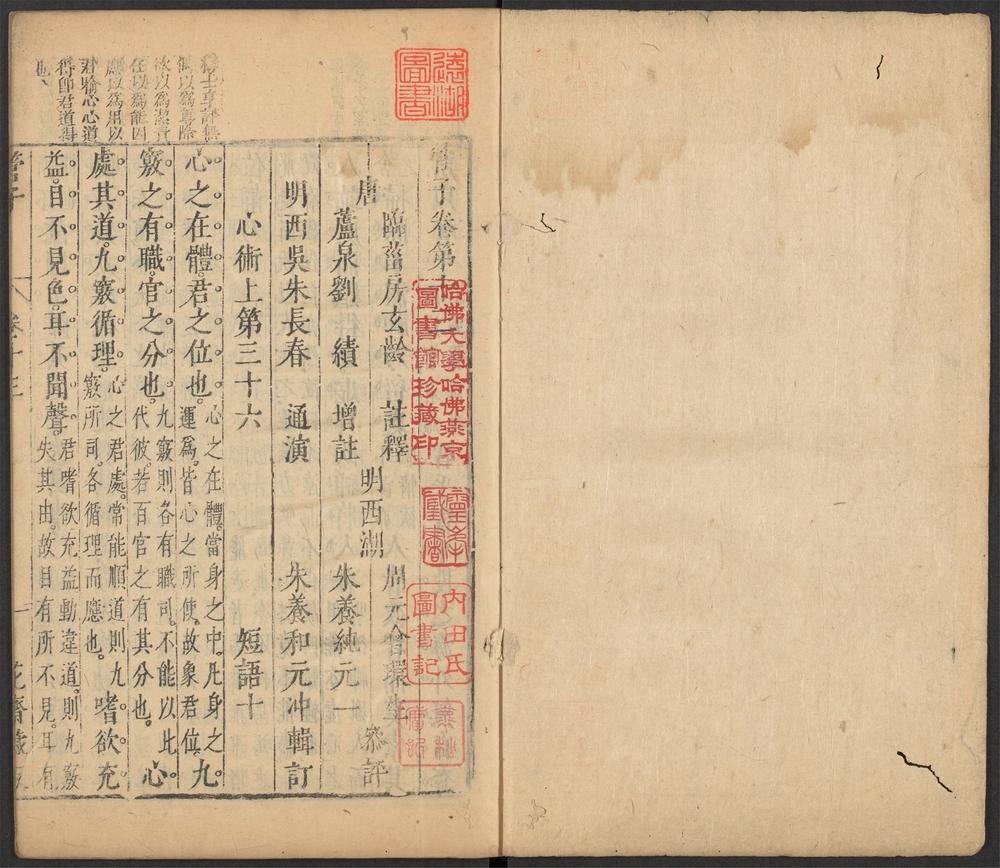 遠湖圖書
哈佛大學哈佛燕京圖書館珍藏印
內田氏圖書記
偶以爲尊除
欲以爲潔責
任以爲能因
應以爲用以
君喻心心道
得即君道得
也
管子卷第十
唐臨菑房玄齡 註釋 明西湖 周元會環生
蘆泉劉 績 增註 朱養純元一 叅評
明西吳朱長春 通演 朱養和元冲輯訂
心術上第三十六 短語十
心之在體。君之位也。心之在體。當身之中。凡身之運爲。皆心之所使。故象君位。九
竅之有職。官之分也。九竅則各有職司。不能以此代彼。若百官之有其分也。心
處其道。九竅循理。心之君處。常能順道則九竅所司。各循理而應也。嗜欲充
益。目不見色。耳不聞聲。君嗜欲充益動違道。則九竅失其由。故目有所不見。耳有